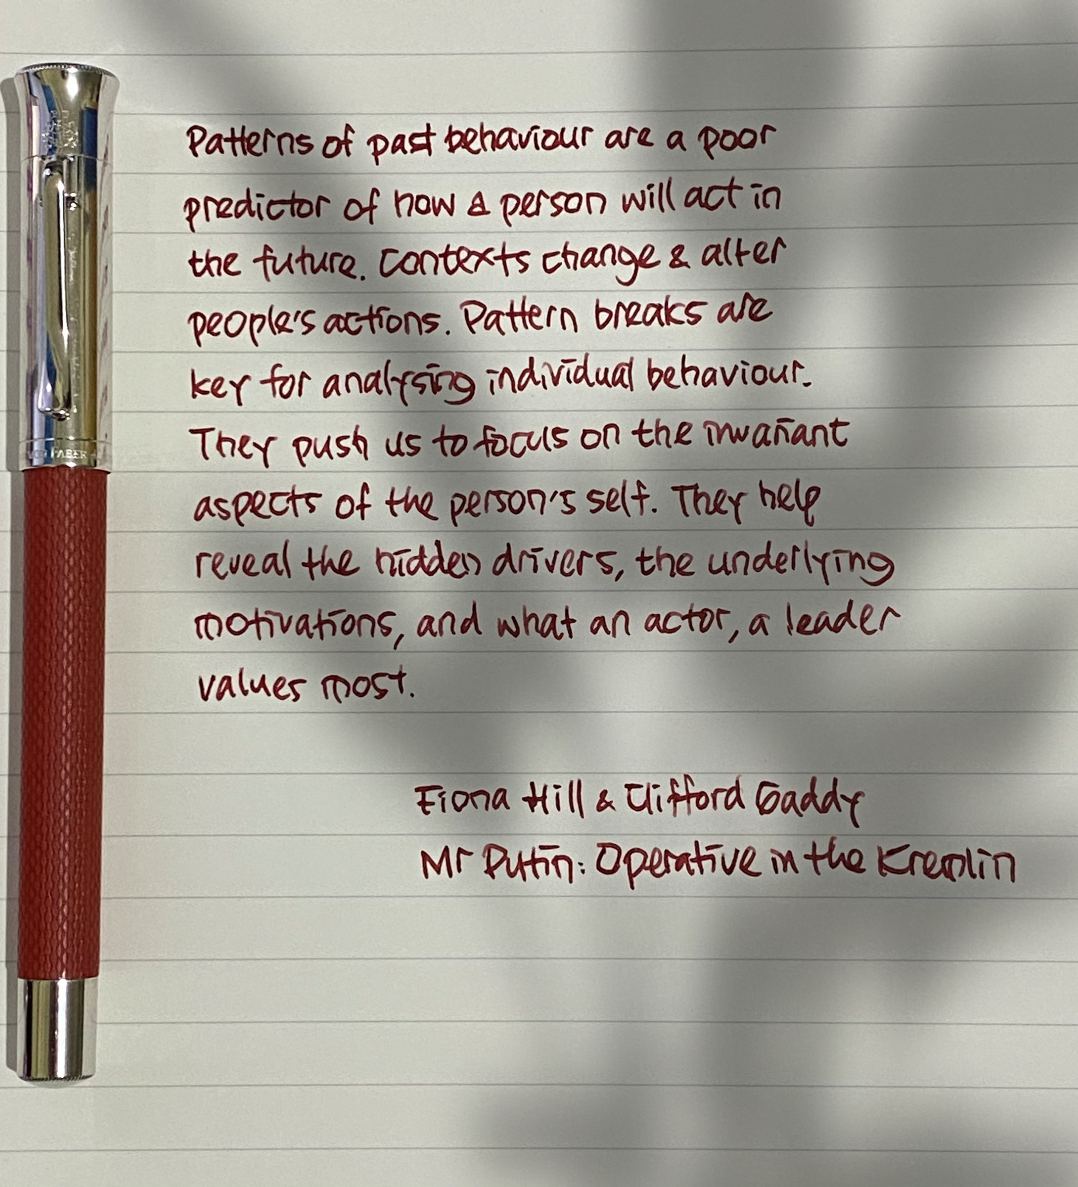 Patterns of past behaviour are a poor
predictor of how a person will act in
the future. Contexts change & alter
people's actions. Pattern breaks are
key for analysing individual behaviour.
They push us to focus on the invariant
aspects of the person's self. They help
reveal the hidden drivers, the underlying
motivations, and what an actor, a leader
values most.
Fiona Hill & Clifford Gaddy
Mr Putin: Operative in the Kremlin
FABER